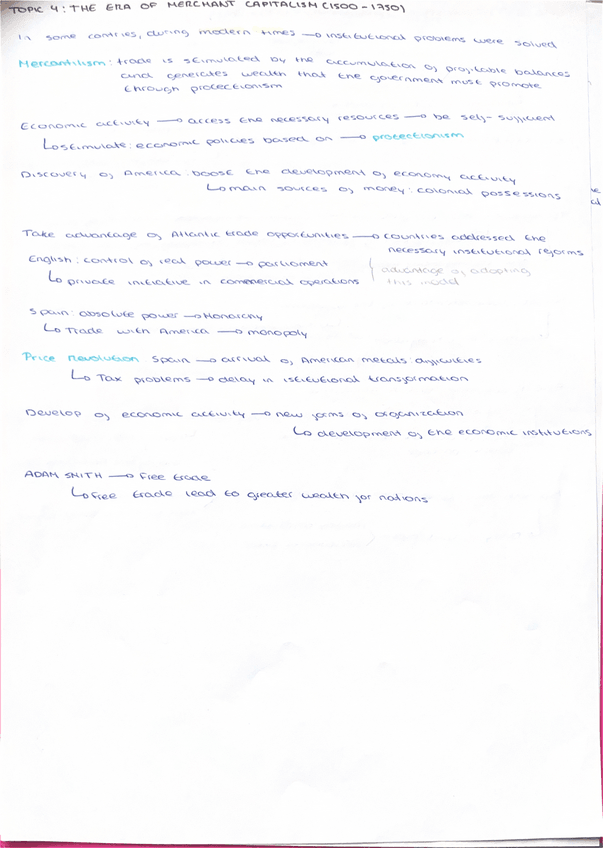 TOPIC 4: THE ERA OF MERCHANT CAPITALISM (1500-1750)
In some contries, during modern times → institutional problems were solved
Mercantilism: trade is stimulated by the accumulation of profitable balances
and generates wealth that the government must promote
through protectionism
Economic activity → access the necessary resources → be self-sufficient
↳ stimulate: economic policies based on → protectionism
Discovery of America: boost the development of economy activity
↳ main sources of money: colonial possessions
Take advantage of Atlantic trade opportunities → countries addressed the
necessary institutional reforms
English: control of real power → parliament
↳ private initiative in commercial operations
advantage of adopting
this model
Spain: absolute power → Monarchy
↳ Trade with America → monopoly
Price Revolution Spain → arrival of American metals
↳ Tax problems → delay in istitutional transformation
Develop of economic activity → new forms of organization
↳ development of the economic institutions
ADAM SMITH → Free trade
↳ Free trade lead to greater wealth for nations